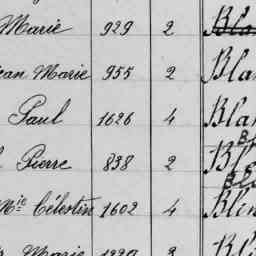 Marie 929 2 Bla
ean Marie 955 2 Bla
Paul 1626 4 Bla
Pierre 838 2 Bl
Mie Célestin 1602 4 Blin
Marie 1220 3 Bl